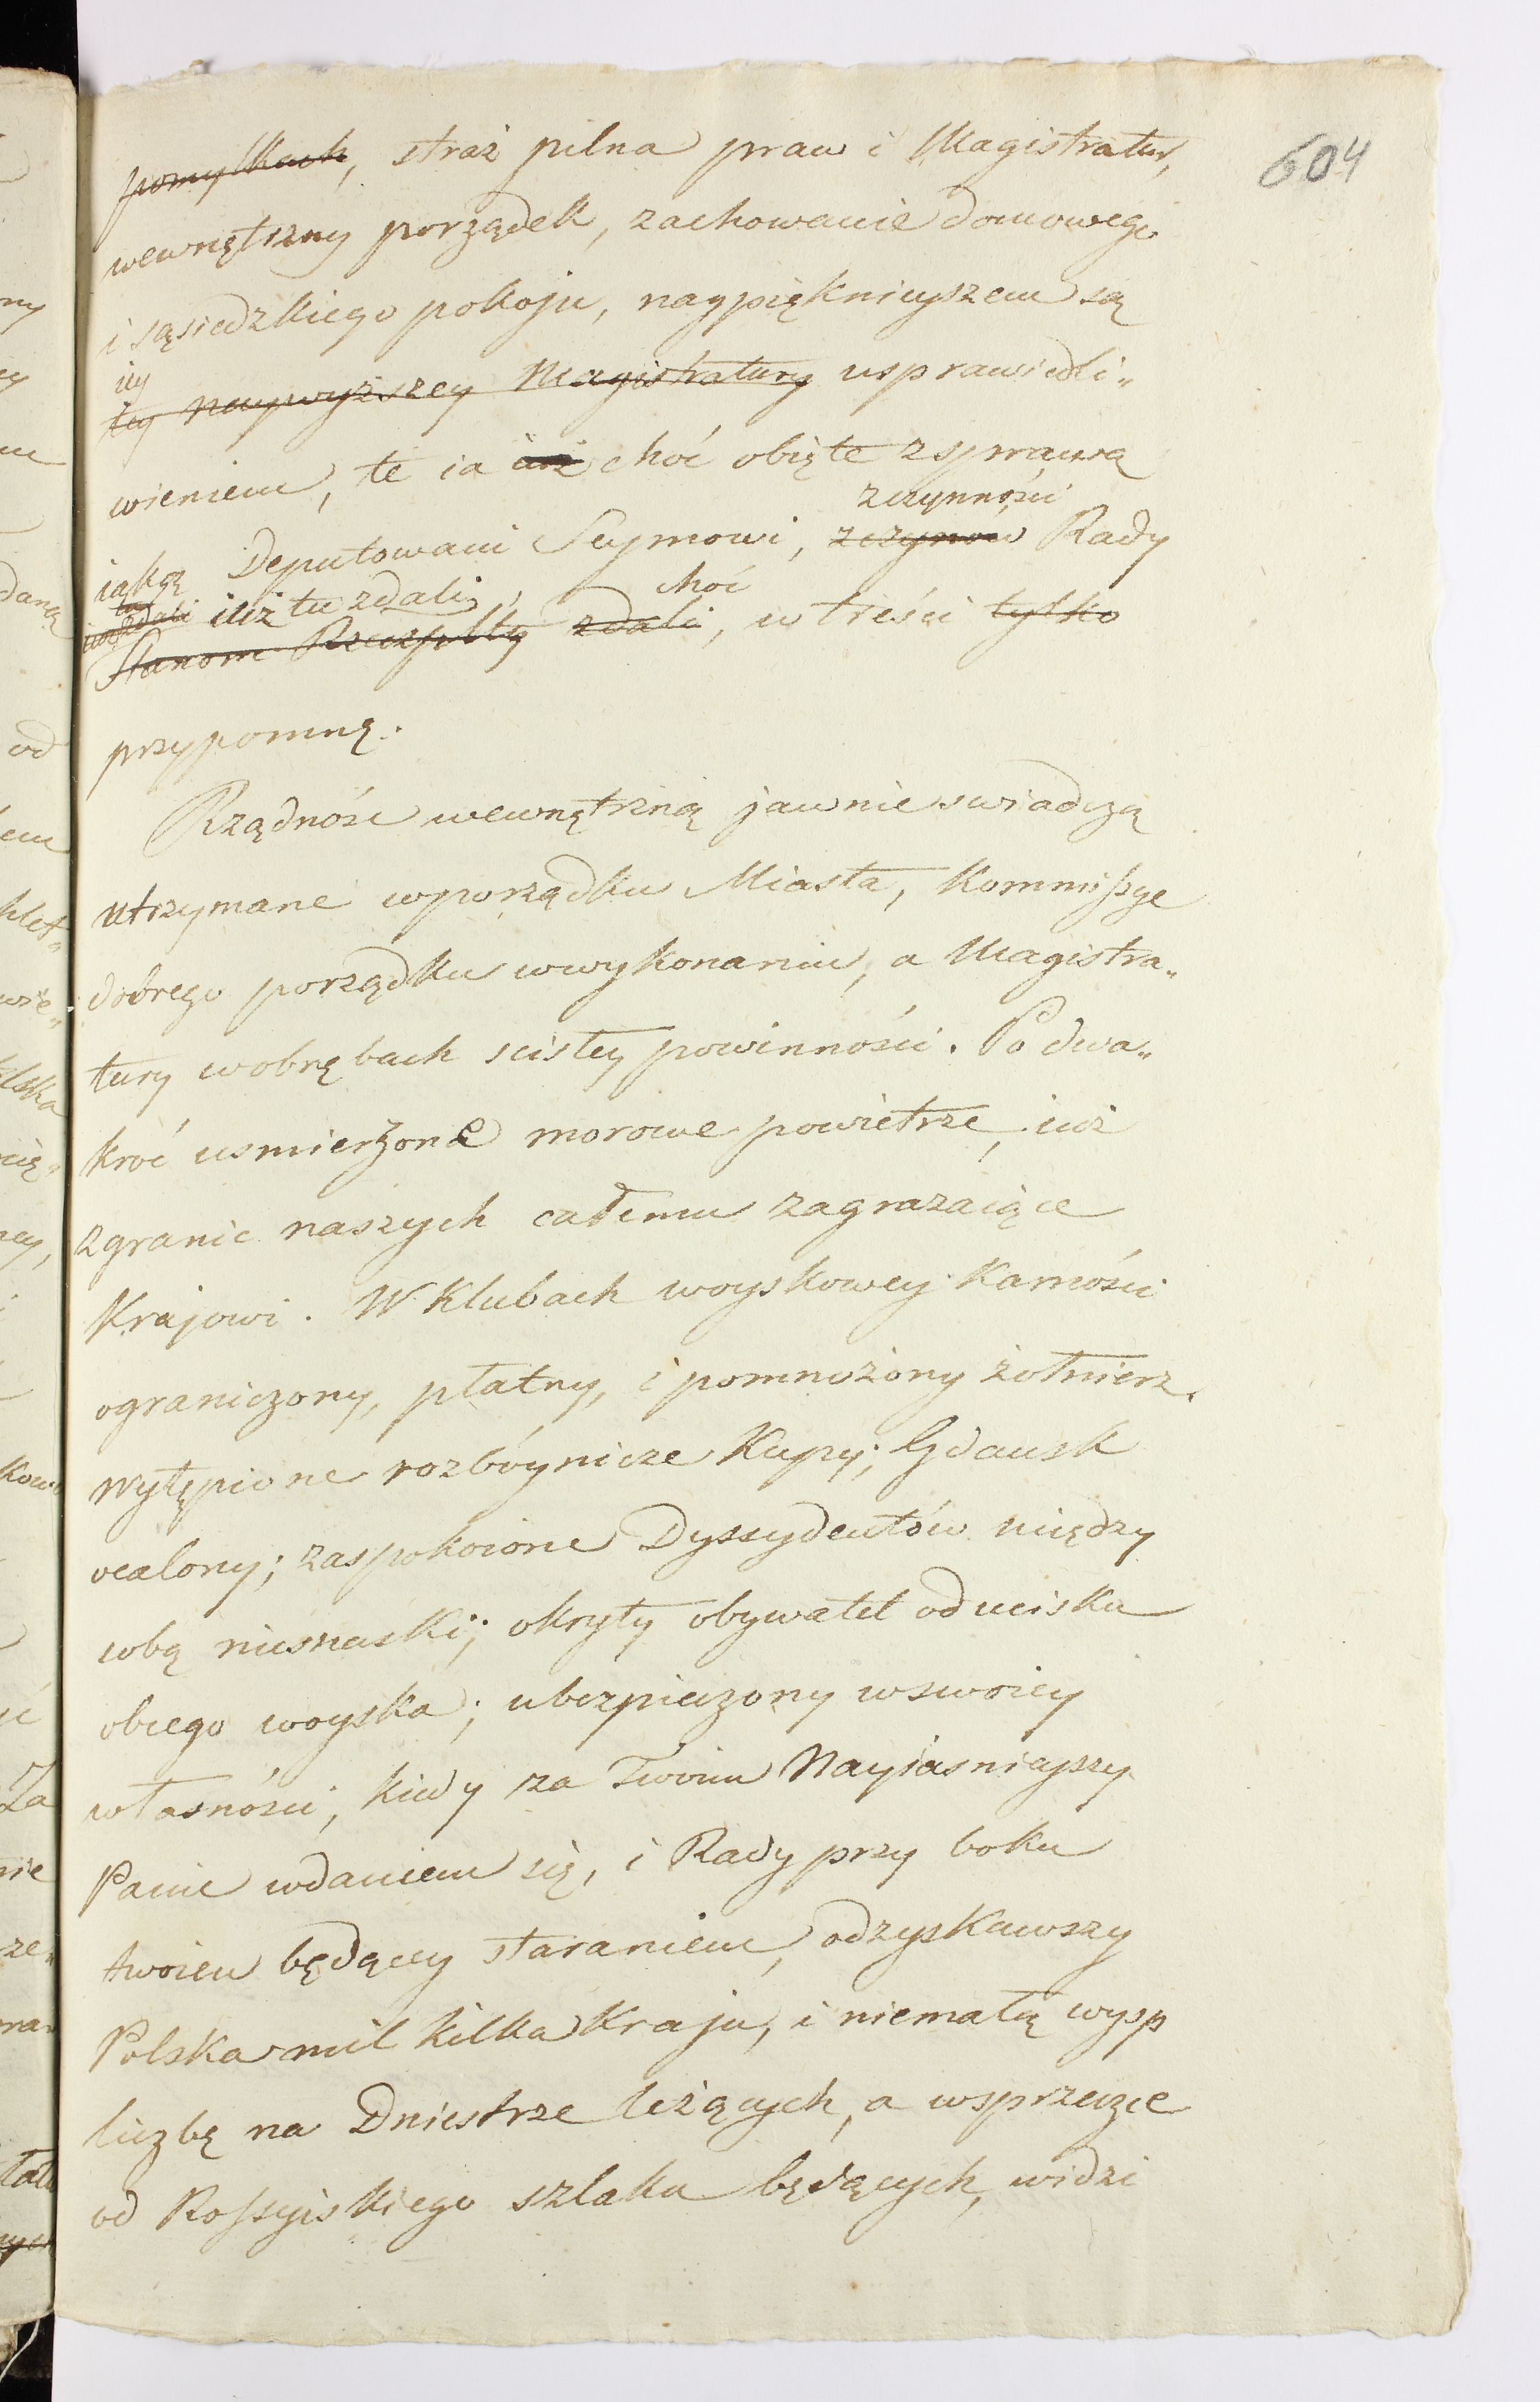 604
pomyłkach, straż pilna praw i Magistratur,
wewnętrzny porządek, zachowanie domowego
i sąsiedzkiego pokoju, naypięknieyszem są
iey
tey Naywyższey Magistratury usprawiedli„
wieniem, te ia iuż choć obięte zsprawą
zczynności
iaką Deputowani Seymowi, zczynów Rady
iuż tu zdali, choć
Stanom Rzeczplltey zdali, w treści tylko
przypomnę.
Rządność wewnętrzną jawnie swiadczą
utrzymane wporządku Miasta, Kommissye
dobrego porządku wwykonaniu, a Magistra„
tury wobrębach scisłey powinności. Po dwa„
kroć usmierzone morowe powietrze, iuż
zgranic naszych całemu zagrazaiące
Krajowi. W Klubach woyskowey Karności
ograniczony, płatny, i pomnożony żołnierz.
Wytępione rozbóynicze Kupy; Gdansk
ocalony; zaspokoione Dyssydentów między
sobą niesnaski; okryty obywatel od ucisku
obcego woyska; ubezpieczony wswoiey
własności, kiedy za Twoim Nayiasnieyszy
Panie wdaniem się, i Rady przy boku
twoiem będącey staraniem, odzyskawszy
Polska mil kilka Kraju, i niemałą wysp
liczbę na Dniestrze leżących, a wsprzeczce
od Rossyiskiego szlaku będących, widzi